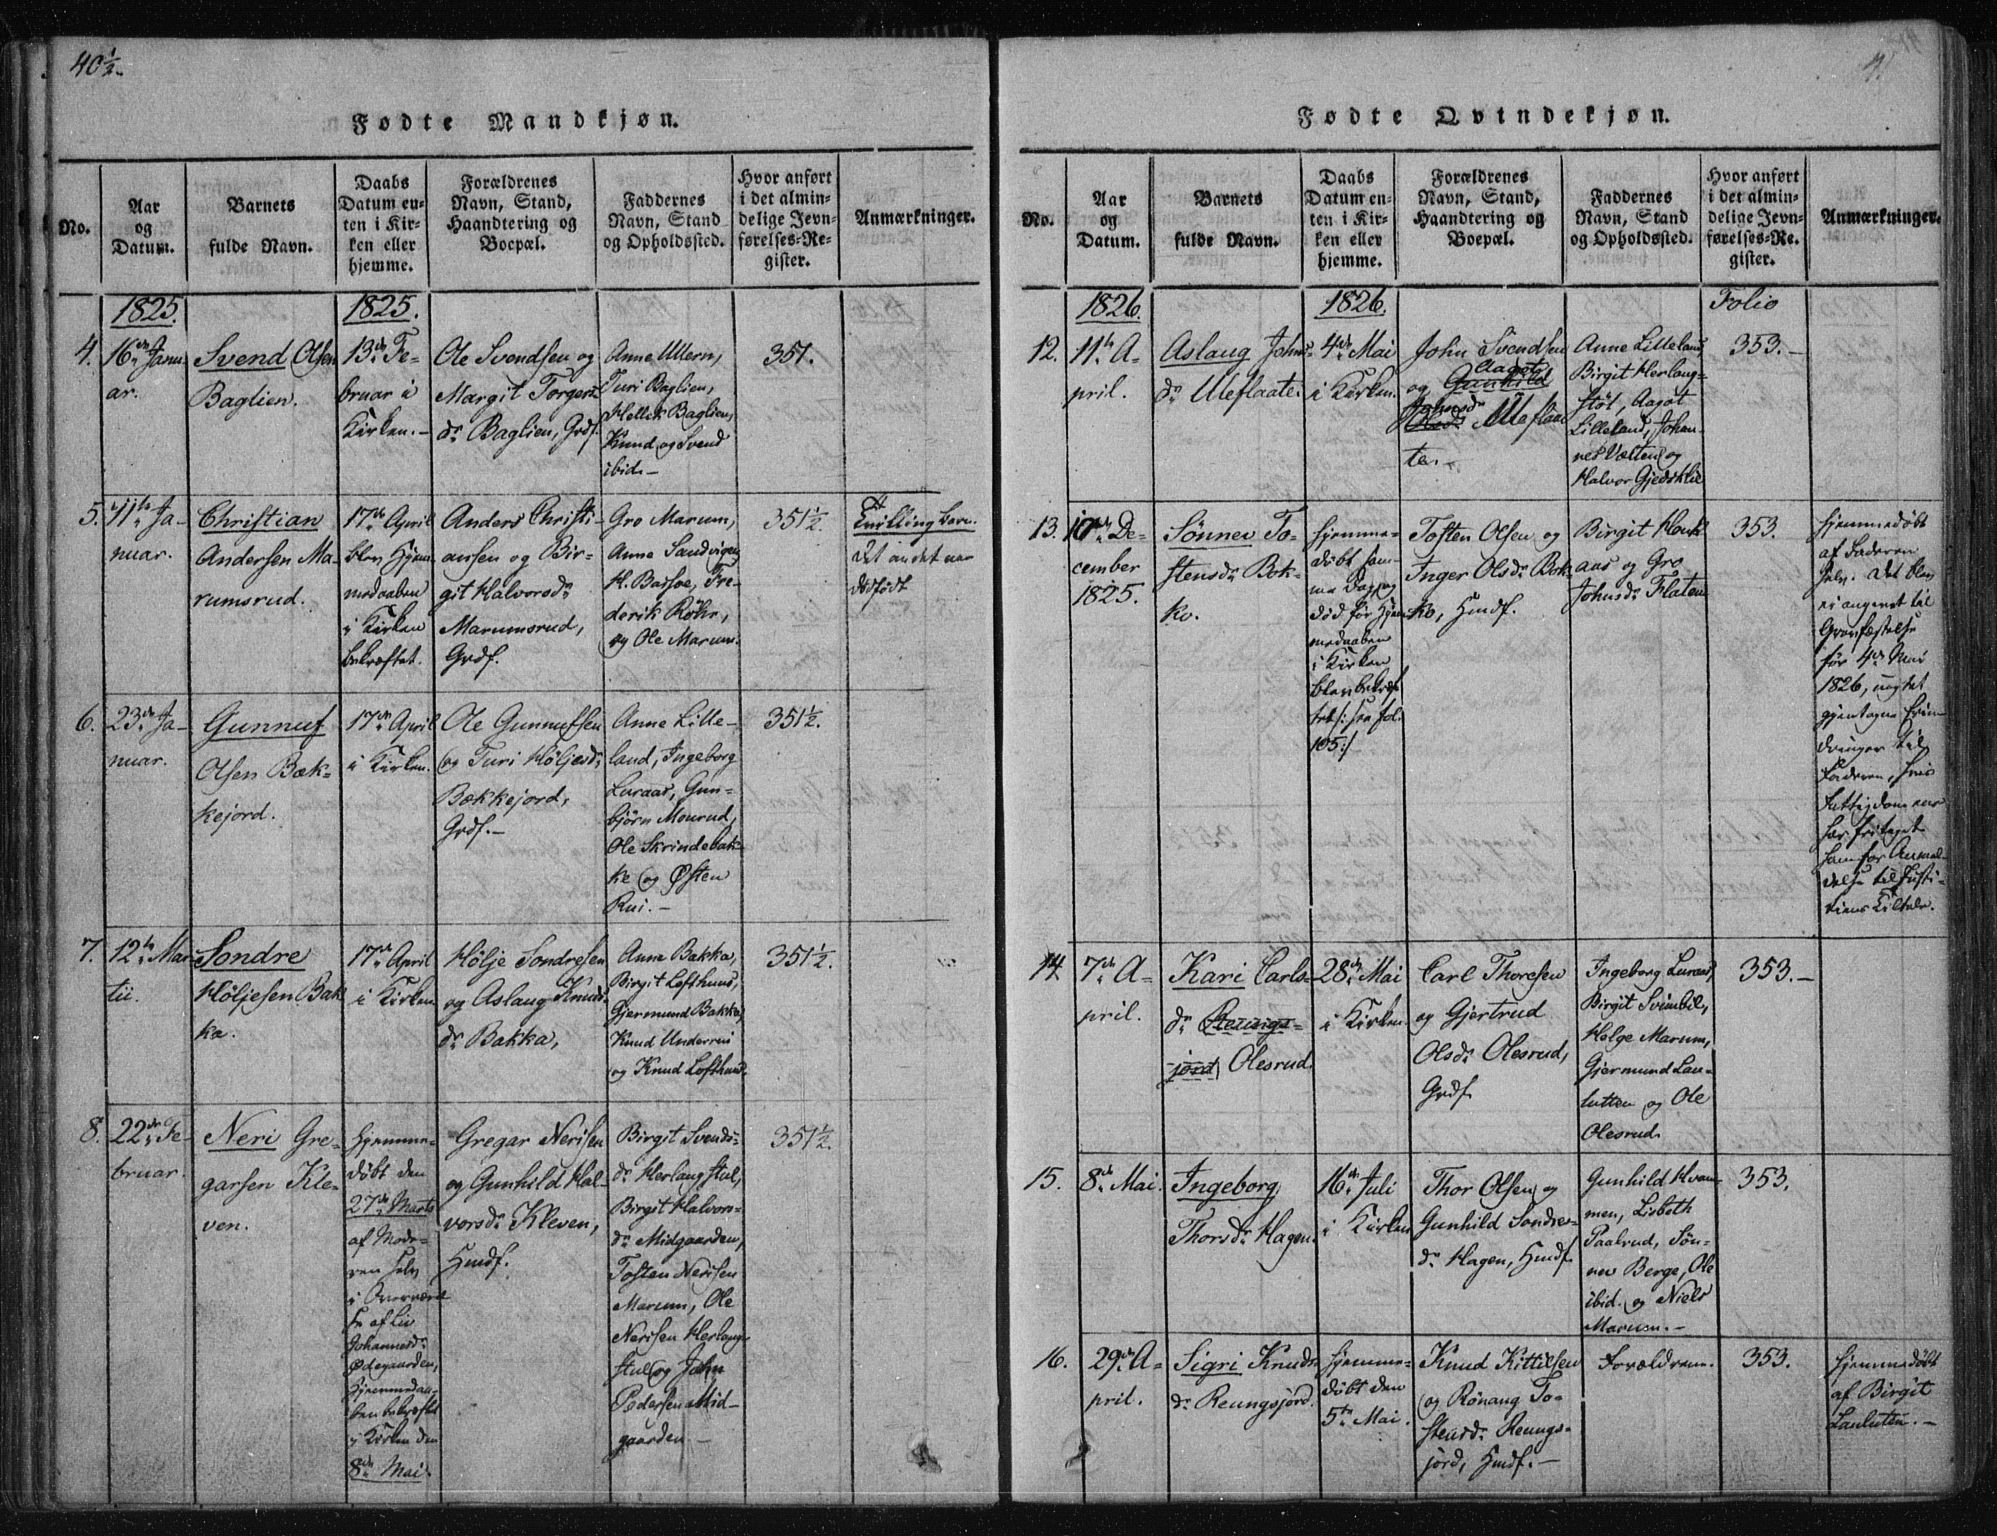 40½.
Fødte Mandkjøn.
No.
Aar
og
Datum.
Barnets
fulde Navn.
Daabs
Datum en-
ten i Kir-
ken eller
hjemme.
Forældrenes
Navn, Stand,
Haandtering og
Boepæl.
Faddernes
Navn, Stand
og Opholdssted.
Hvor anført
i det almin-
delige Jevn-
førelses-Re-
gister.
Anmærkninger.
1825.
1825.
4.
16de Janu
ar.
Svend Olsen
Baglien.
13de Fe-
bruar i
Kirken.-
Ole Svendsen og
Margit Torgers
dr. Baglien, Grdf.
Anne Ullern,
Turi Baglien,
Hellek Baglien,
Knud og Svend
ibid.-
351.
5.
11te Ja-
nuar.
Christian
Andersen Ma-
rumsrud.
17de April
blev Hjem-
medaaben
i Kirken
bekræftet.
Anders Christi-
ansen og Bir-
git Halvorsdr.
Marumsrud,
Grdf.
Gro Marum,
Anne Sandvigen,
H. Barsoe, Fre-
derik Röhr,
og Ole Marum.
351½.
Tvillingbarn.
Det andet var
dødfødt
6.
23de Ja-
nuar.
Gunnuf
Olsen Bæk-
kejord.
17de April
i Kirken.
Ole Gunnufsen
og Turi Höljesdr.
Bækkejord,
Grdf.-
Anne Lille-
land, Ingeborg
Luraas, Gun-
björn Mourud,
Ole Skrindebak-
ke og Østen
Rui.-
351½.
7.
12te Mar
tii.
Sondre
Höljesen Bak
ka.
17de April
i Kirken
Hölje Sondresen
og Aslaug Knuds-
dr. Bakka,
Anne Bakka,
Birgit Lofthuus,
Gjermund Bakka,
Knud Underrui
og Knud Lofthuus.
351½.
8.
22de Fe-
bruar.
Neri Gre-
garsen Kle-
ven.
Hjemme-
døbt den
27de Marts
af Mode-
ren selv
i Overværel
se af Liv
Johannesdr.
Ödegaarden,
Hjemmedaa-
ben bekræftet
i Kirken den
8de Mai.
Gregar Nerisen
og Gunhild Hal-
vorsdr. Kleven,
Huusf.
Birgit Svends-
dr. Herlangstul,
Birgit Halvors-
dr. Midgaarden,
Tosten Nerisen
Marum, Ole
Nerisen Herlang-
stul og John
Pedersen Mid-
gaarden.-
351½.
Fødte Qvindekjøn.
No.
Aar
og
Datum.
Barnets
fulde Navn.
Daabs
Datum en-
ten i Kir-
ken eller
hjemme.
Forældrenes
Navn, Stand,
Haandtering og
Boepæl.
Faddernes
Navn, Stand
og Opholdssted.
Hvor anført
i det almin-
delige Jevn-
førelses-Re-
gister.
Anmærkninger.
1826.
1826.
Folio
12.
11te A-
pril.
Aslaug Johns-
dr. Uleflaate.
4de Mai
i Kirken.
John Svendsen
Aagot
og Gunhild
Johnsdr.
Olsdr. Uleflaa
te.-
Anne Lilleland,
Birgit Herlang-
stöl, Aagot
Lilleland, Johan-
nes Vælten og
Halvor Gjedsklie
353.-
13.
10de De-
cember
1825.
Sönnev To-
stensdr. Bok-
ko.
Hjemme-
døbt sam-
me Dag, og
død før Hjem
medaaben
i Kirken
blev bekræf
tet /: see fol.
105 :/
Tosten Olsen og
Inger Olsdr. Bok-
ko, Huusf.
Birgit Hauk
aas og Gro
Johnsdr. Flaten
353.
Hjemmedøbt
af Faderen
selv. Det blev
ei angivet til
Gravfæstelse
før 4de Mai
1826, uagtet
gjentagne Erin-
dringer til
Faderen, hvis
Fattigdom vær
har fritaget
ham for Anmel-
delse til Justi-
tiens Tiltale.
14.
7de A-
pril.
Kari Carls-
dr. Reungs-
jord Olesrud
28de Mai
i Kirken.
Carl Thoresen
og Gjertrud
Olsdr. Olesrud,
Grdf.
Ingeborg Luraas,
Birgit Svimbil,
Helge Marum,
Gjermund Lau-
lutten og Ole
Olesrud.
353.-
15.
8de Mai.
Ingeborg
Thorsdr. Hagen.
16de Juli
i Kirken
Thor Olsen og
Gunhild Sondres-
dr. Hagen, Huusf.
Gunhild Hvam-
men, Lisbeth
Paalrud, Sön-
nev Berge, Ole
ibid. og Niels
Marum.-
353.
16.
29de A-
pril.
Sigri Knuds-
dr. Reungsjord.
Hjemme-
døbt den
5te Mai.
Knud Kittilsen
og Rönaug To-
stensdr. Reungs-
jord, Huusf.-
Forældrene.
353.
Hjemmedøbt
af Birgit
Laulutten.-